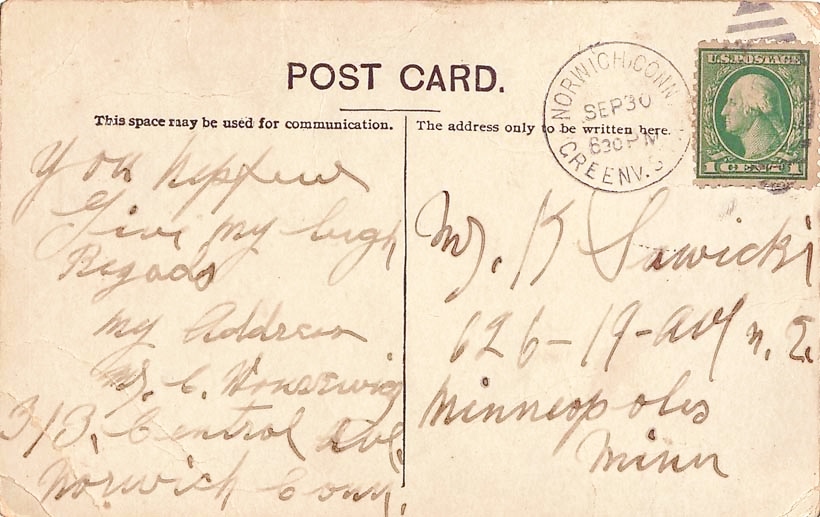 POST CARD.
This space may be used for communication.
The address only to be written here.
NORWICH, CONN.
SEP 30
630 PM
GREENV. S
U.S. POSTAGE
1 CENT 1
you
Give my high
Regads
my Address
313, Central Ave.
Norwich Conn.
Mr. K Sawicki
626-19-Ave n. E.
Minneopoles
Minn